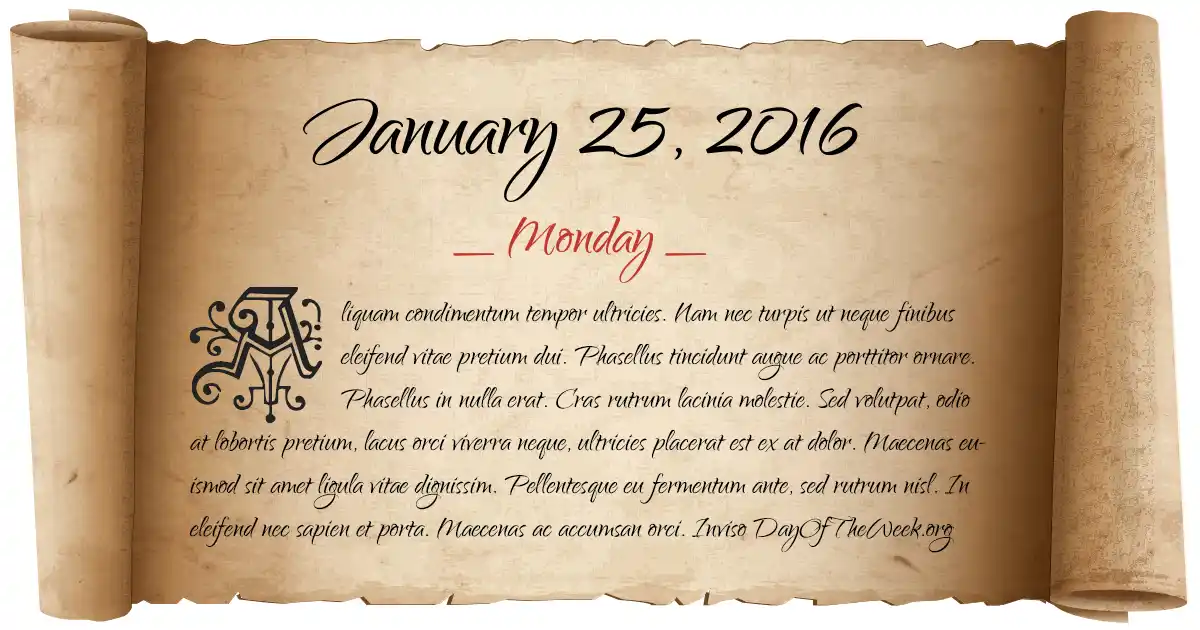 January 25, 2016
— Monday —
Aliquam condimentum tempor ultricies. Nam nec turpis ut neque finibus
eleifend vitae pretium dui. Phasellus tincidunt augue ac porttitor ornare.
Phasellus in nulla erat. Cras rutrum lacinia molestie. Sed volutpat, odio
at lobortis pretium, lacus orci viverra neque, ultricies placerat est ex at dolor. Maecenas eu-
ismod sit amet ligula vitae dignissim. Pellentesque eu fermentum ante, sed rutrum nisl. In
eleifend nec sapien et porta. Maecenas ac accumsan orci. Inviso DayOfTheWeek.org